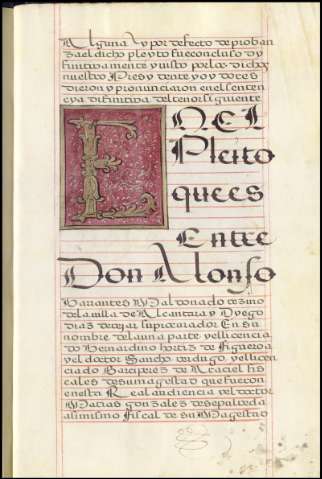 Alguna y por defecto de proban
za el dicho pleyto fue concluso dy
finitivamente y visto por los dichos
nuestro Presydente y oydores
dieron y pronunciaron en el senten
cya difinitiva del tenor siguiente
EN EL
Pleito
que es
Entre
Don Alonso
Barantes Maldonado vezino
de la villa de Alcantara y Dyego
diaz de vejar su procurador En su
nombre de la una parte y el licencia
do Bernardino hortiz de Figueroa
y el doctor Sancho verdugo, y el licen
ciado Garci perez de Araciel fis
cales de su magestad que fueron
en esta Real audiencia y el doctor
Matias gonzales de sepulveda
asimismo Fiscal de su Magestad